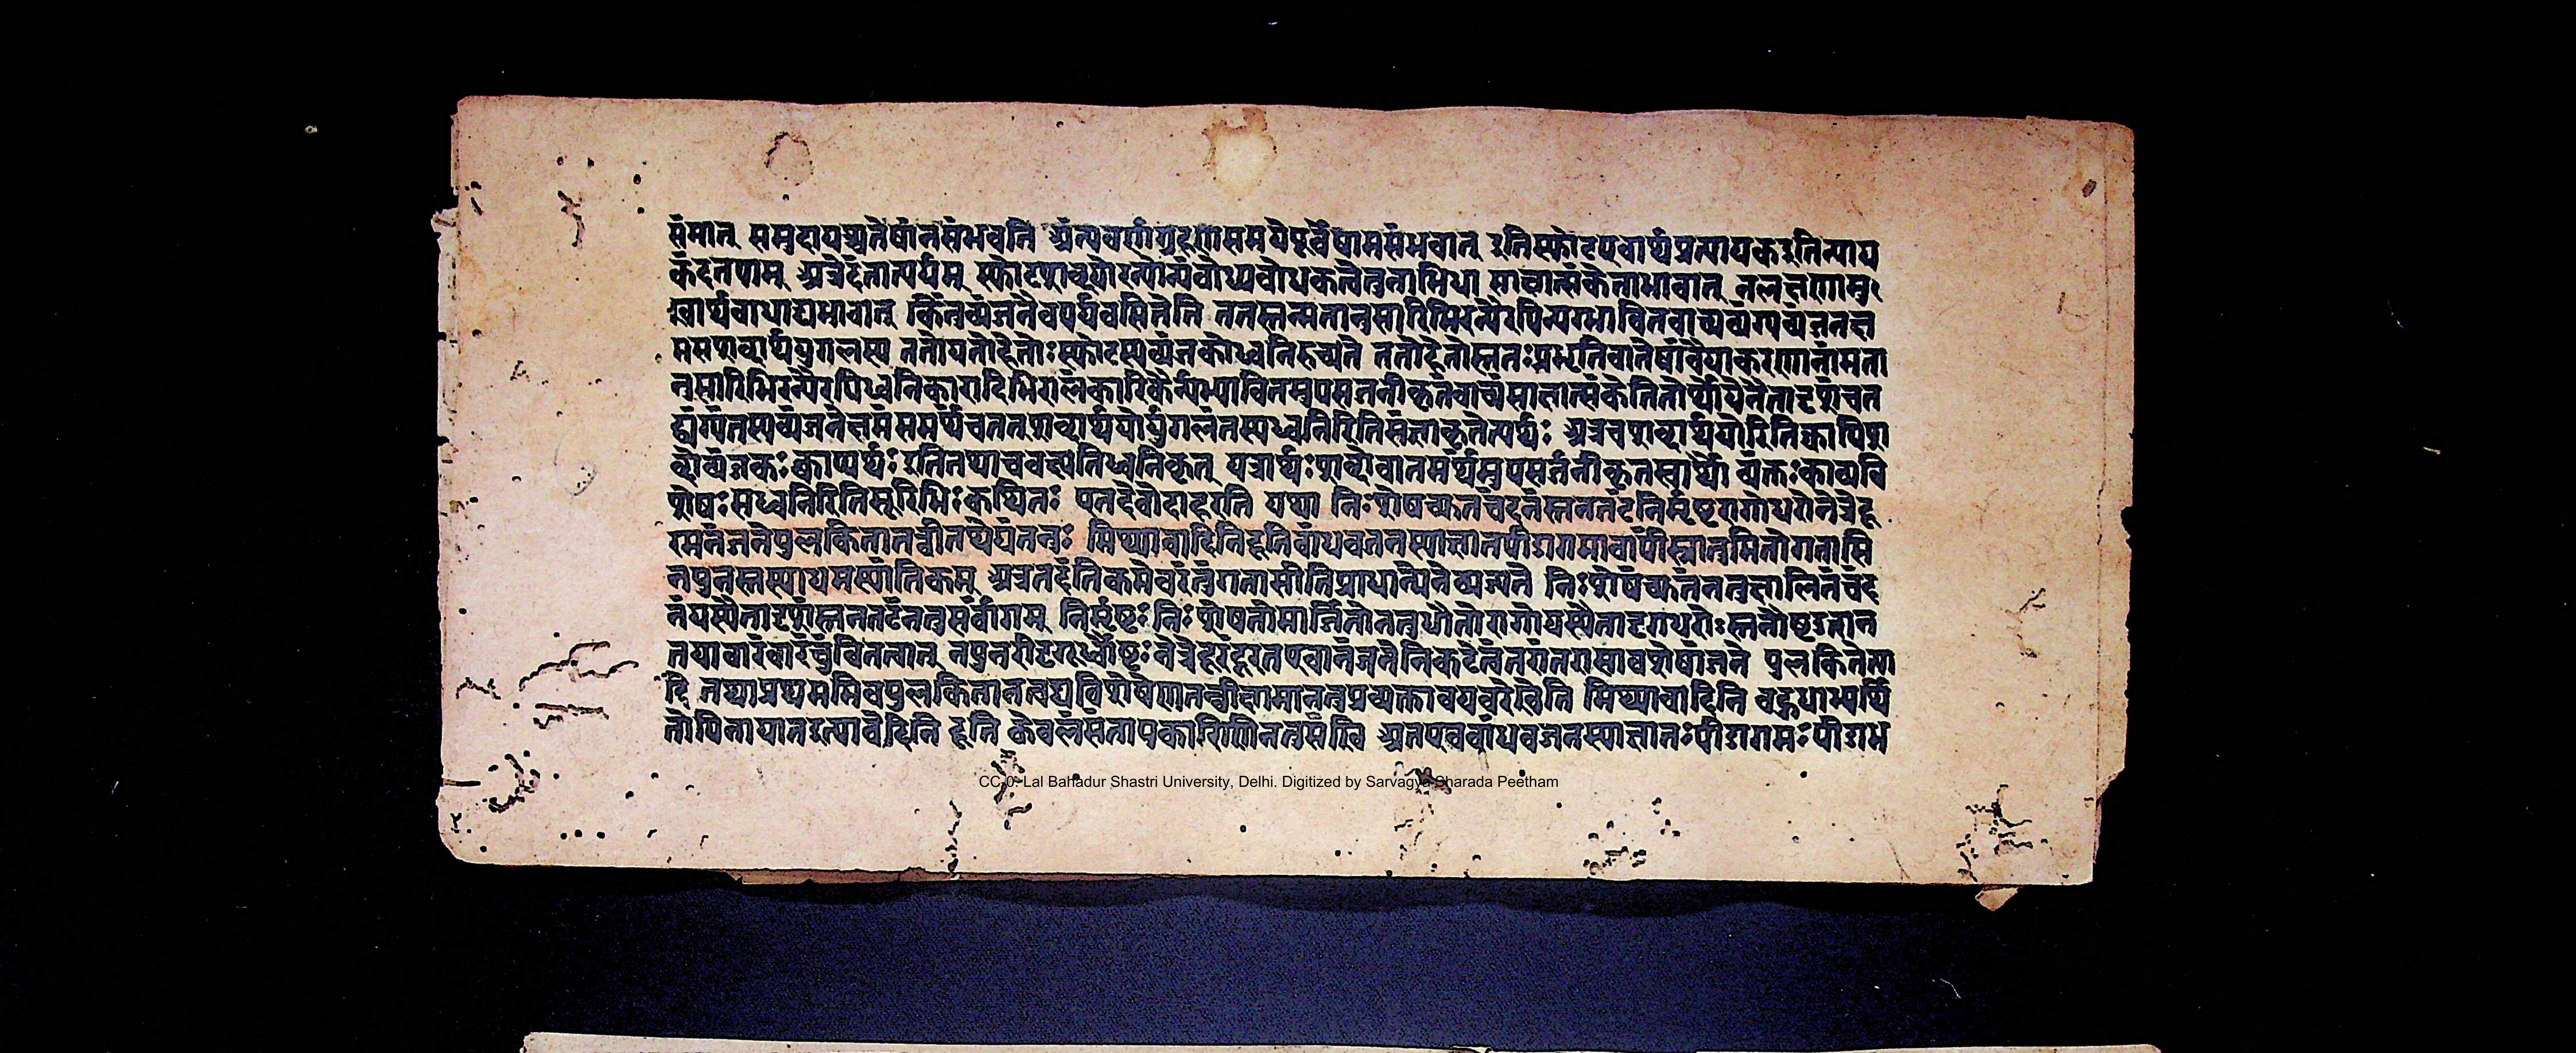 संमात् समुदायश्चतेषांनसंभवति अंत्यवर्णग्रहणसमयेपूर्वेषामसंभवात् इतिस्फोटएवार्थप्रत्यायकइतिन्याय
कंदनयाम् अत्रेदंतात्पर्यम् स्फोटशब्दयोरन्योन्यंबोध्यबोधकत्वेतुनाभिधा साक्षात्संकेताभावात् नलक्षणामु
ख्यार्थबाधाद्यभावात् किंतुव्यंजनैवपर्यवसितेति ततस्तन्मतानुसारिभिरन्यैरपिन्यग्भावितवाच्यव्यंग्यव्यंजनक्ष
मसशब्दार्थयुगलस्य ततोयतोहेतोःस्फोटस्यव्यंजकोध्वनिरुच्यते ततोहेतोस्ततःप्रभृतिवातेषांवैयाकरणानांमता
नुसारिभिरन्यैरपिध्वनिकारादिभिरालंकारिकैर्न्यग्भावितमुपसर्जनीकृतंवाच्यंसाक्षात्संकेतितोर्थोयेनैतादृशंचत
द्व्यंग्यंतस्यव्यंजनेक्षमंसमर्थंचतत्शब्दार्थयोर्युगलंतस्यध्वनिरितिसंज्ञाकृतेत्यर्थः अत्रचशब्दार्थयोरितिक्वापिश
ब्दोव्यंजकः क्वाप्यर्थः इतितथाचवक्ष्यतिध्वनिकृत् यत्रार्थःशब्दोवातमर्थमुपसर्जनीकृतस्वार्थौ व्यंक्तःकाव्यवि
शेषःसध्वनिरितिसूरिभिःकथितः एतदेवोदाहरति यथा निःशेषच्युतचंदनंस्तनतटंनिर्मृष्टरागोधरोनेत्रेदू
रमनंजनेपुलकितातन्वीतथेयंतनुः मिथ्यावादिनिदूतिबांधवजनस्याज्ञातपीडागमावापींस्नातुमितोगतासि
नपुनस्तस्याधमस्यांतिकम् अत्रतदंतिकमेवरंतुंगतासीतिप्राधान्येनव्यज्यते निःशेषंच्युतंनतुक्षालितंचंद
नंयस्यैतादृशंस्तनतटंनतुसर्वांगम् निर्मृष्टः निःशेषतोमार्जितोनतुधौतोरागोयस्यैतादृगधरोः स्तनौष्ठ
तयावारंवारंचुंबितत्वात् नपुनरीदृगूर्ध्वोष्ठः नेत्रेदूरंदूरतएवानंजनेनिकटेत्वंतरांतरासावशेषांजने पुलकितेत्या
दि तथाप्रथममिवपुलकितातत्वद्यविशेषेणातन्वीक्षामानतुप्रव्यक्तावयवरेखेति मिथ्यावादिनि बहुधाभ्यर्थि
तोपिनायातइत्यावेदिनि दूति केवलंसंतापकारिणीनतुसखि अतएवबांधवजनस्याज्ञातःपीडागमःपीडाभ
CC-0. Lal Bahadur Shastri University, Delhi. Digitized by Sarvagya Sharada Peetham